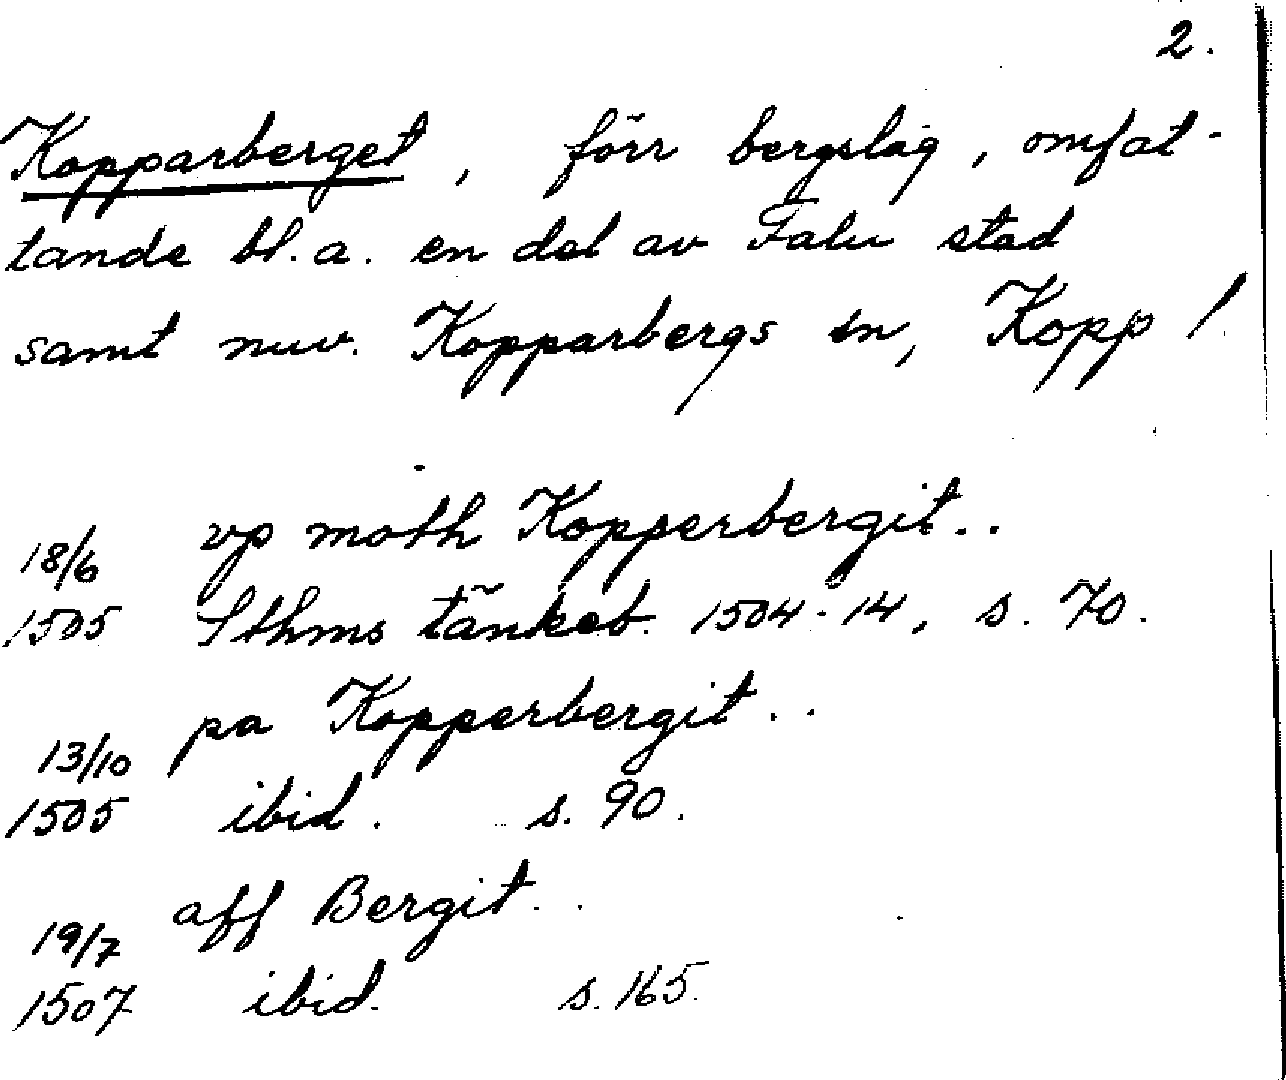 2.
Kopparberget, förr bergslag, omfat-
tande bl.a. en del av Falu stad
samt nuv. Kopparbergs sn, Kopp l.
vp moth Kopperbergit..
18/6
1505 Sthms tänkeb. 1504-14, s. 70.
pa Kopperbergit..
13/10
1505 ibid. s. 90.
aff Bergit..
19/7
1507 ibid. s. 165.